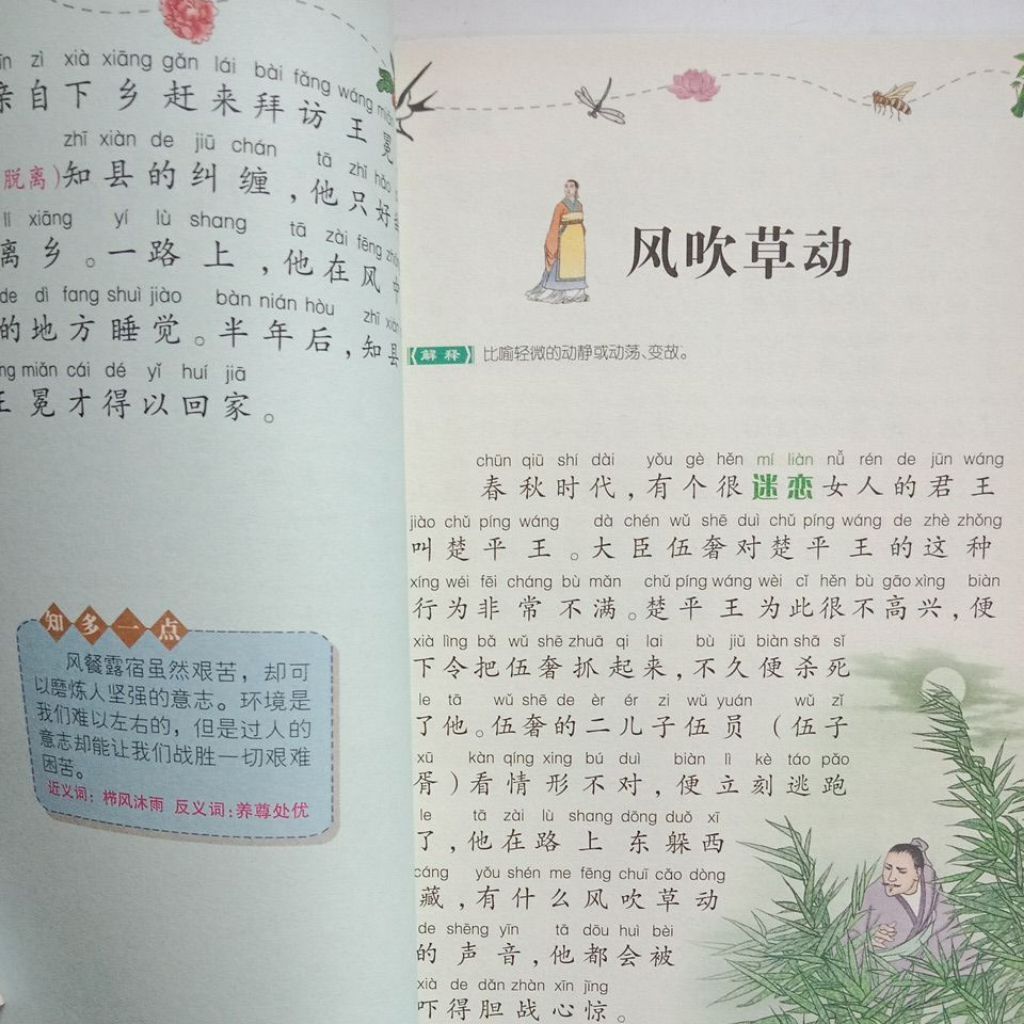 zì xià xiāng gǎn lái bài fǎng wáng
亲自下乡赶来拜访王冕
zhī xiàn de jiū chán tā zhǐ hǎo
脱离)知县的纠缠,他只好
lí xiāng yí lù shang tā zài fēng
离乡。一路上,他在风
de dì fang shuì jiào bàn nián hòu zhī xiàn
的地方睡觉。半年后,知县
miǎn cái dé yǐ huí jiā
王冕才得以回家。
知多一点
风餐露宿虽然艰苦,却可
以磨炼人坚强的意志。环境是
我们难以左右的,但是过人的
意志却能让我们战胜一切艰难
困苦。
近义词:栉风沐雨 反义词:养尊处优
风吹草动
【解释】比喻轻微的动静或动荡、变故。
chūn qiū shí dài yǒu gè hěn mí liàn nǚ rén de jūn wáng
春秋时代,有个很迷恋女人的君王
jiào chǔ píng wáng dà chén wǔ shē duì chǔ píng wáng de zhè zhǒng
叫楚平王。大臣伍奢对楚平王的这种
xíng wéi fēi cháng bù mǎn chǔ píng wáng wèi cǐ hěn bù gāo xìng biàn
行为非常不满。楚平王为此很不高兴,便
xià lìng bǎ wǔ shē zhuā qi lai bù jiǔ biàn shā sǐ
下令把伍奢抓起来,不久便杀死
le tā wǔ shē de èr ér zi wǔ yuán wǔ zǐ
了他。伍奢的二儿子伍员(伍子
xū kàn qíng xing bú duì biàn lì kè táo pǎo
胥)看情形不对,便立刻逃跑
le tā zài lù shang dōng duǒ xī
了,他在路上东躲西
cáng yǒu shén me fēng chuī cǎo dòng
藏,有什么风吹草动
de shēng yīn tā dōu huì bèi
的声音,他都会被
xià de dǎn zhàn xīn jīng
吓得胆战心惊。